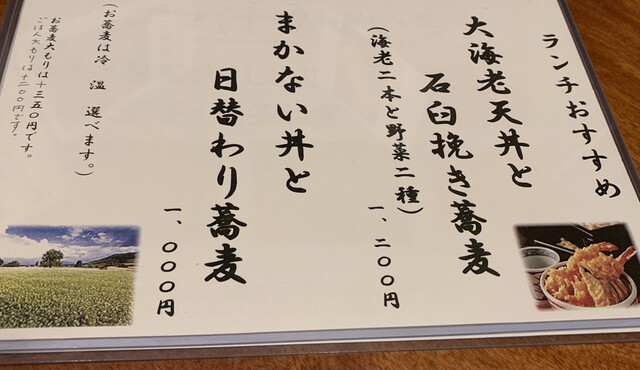 ランチおすすめ
大海老天丼と
石臼挽き蕎麦
(海老二本と野菜二種)
一、二〇〇円
まかない丼と
日替わり蕎麦
一、〇〇〇円
(お蕎麦は冷 温 選べます。)
お蕎麦大もりは+三五〇円です。
ごはん大もりは+二〇〇円です。